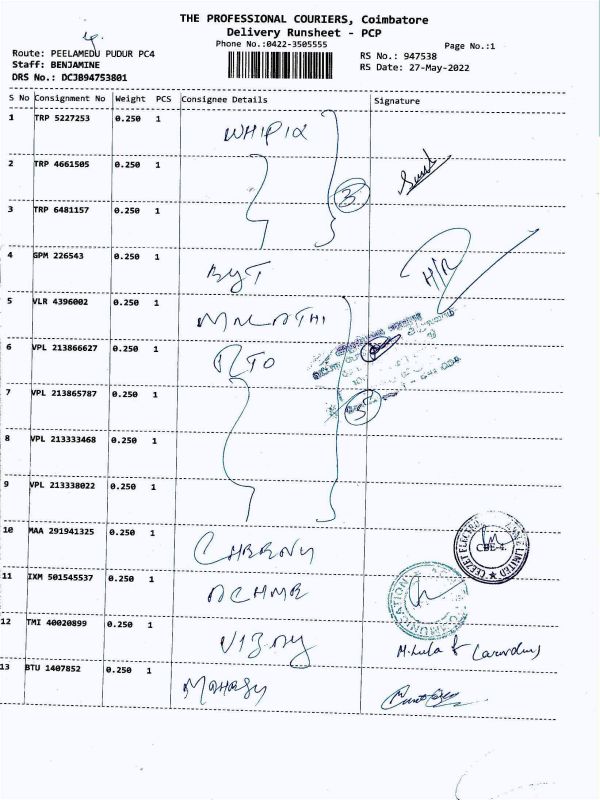 THE PROFESSIONAL COURIERS, Coimbatore
Delivery Runsheet - PCP
Phone No.:0422-3505555
Page No.:1
Route: PEELAMEDU PUDUR PC4
Staff: BENJAMINE
DRS No.: DCJ894753801
RS No.: 947538
RS Date: 27-May-2022
S No Consignment No Weight PCS Consignee Details Signature
1 TRP 5227253 0.250 1 WHIPIX
2 TRP 4661505 0.250 1
3 TRP 6481157 0.250 1
3
4 GPM 226543 0.250 1 H/R
5 VLR 4396002 0.250 1
6 VPL 213866627 0.250 1 RTO
7 VPL 213865787 0.250 1
5
8 VPL 213333468 0.250 1
9 VPL 213338022 0.250 1
10 MAA 291941325 0.250 1
CBE-4.
LIMITED
11 IXM 501545537 0.250 1
12 TMI 40020899 0.250 1 VIJAY
13 BTU 1407852 0.250 1